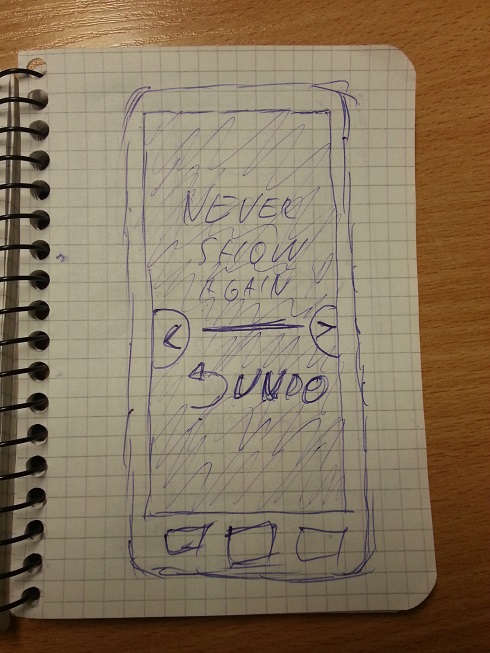 NEVER
SHOW
AGAIN
< >
UNDO